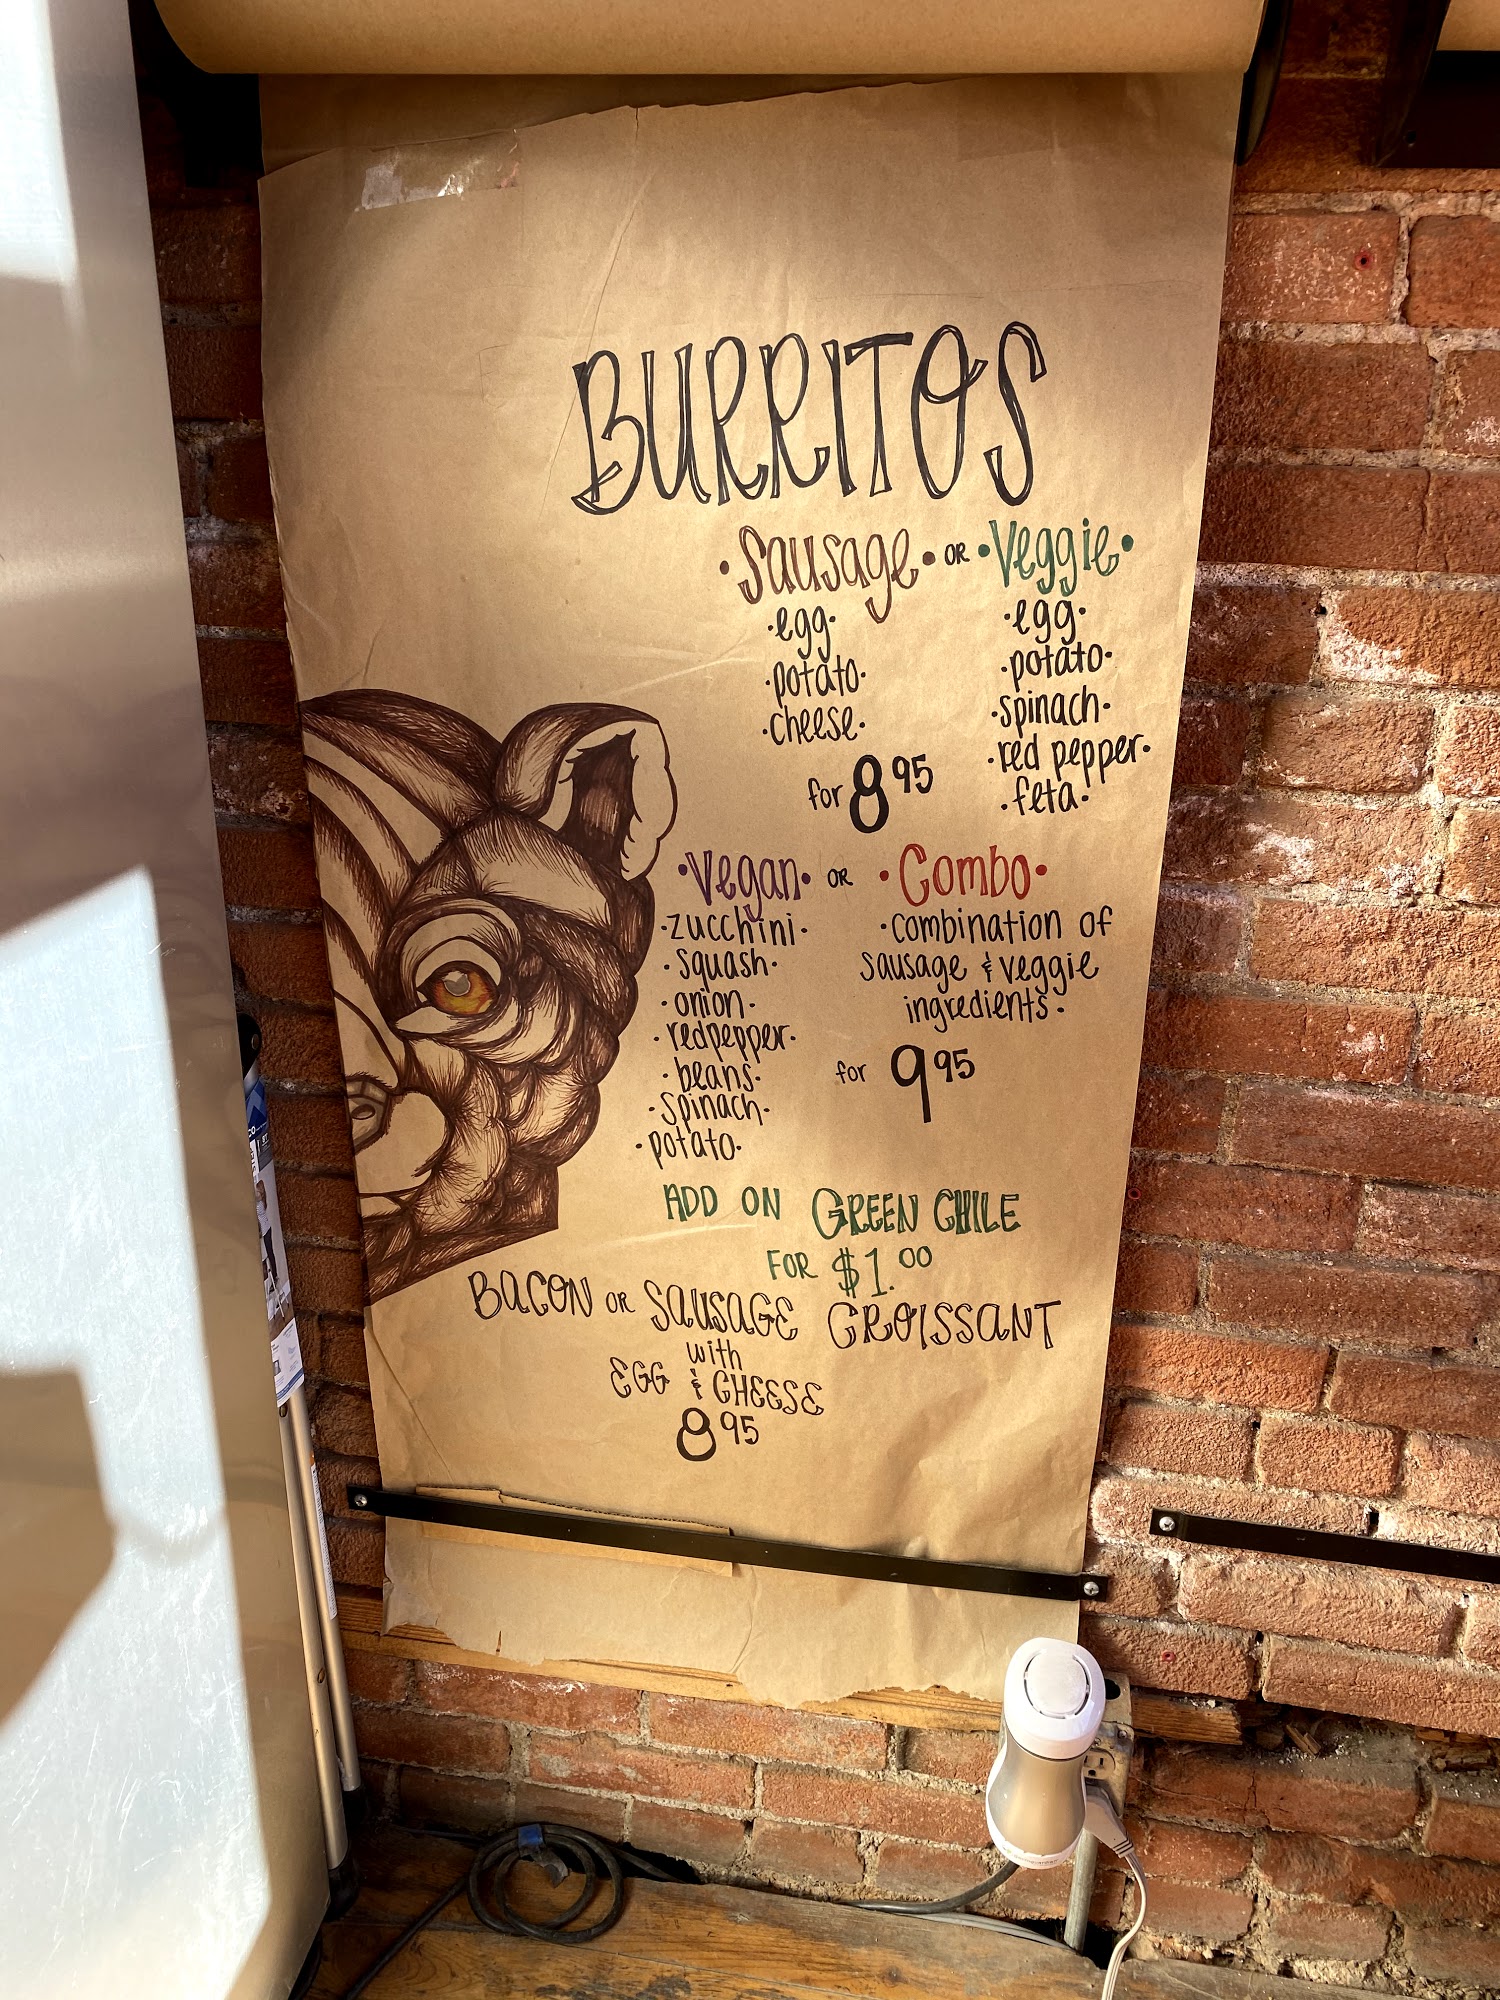 BURRITOS
·Sausage· OR ·Veggie·
·egg·
·potato·
·cheese·
·egg·
·potato·
·spinach·
·red pepper·
·feta·
for 8 95
·Vegan· OR ·Combo·
·zucchini·
·squash·
·onion·
·red pepper·
·beans·
·spinach·
·potato·
·combination of
sausage & veggie
ingredients·
for 9 95
ADD ON GREEN CHILE
FOR $1.00
BACON OR SAUSAGE CROISSANT
with
EGG & CHEESE
8 95